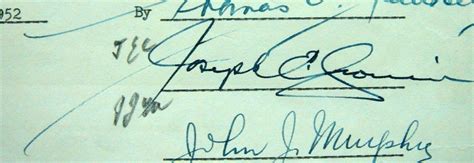 952 By Thomas
JEC Joseph E. Cronin
JJM
John J. Murphy